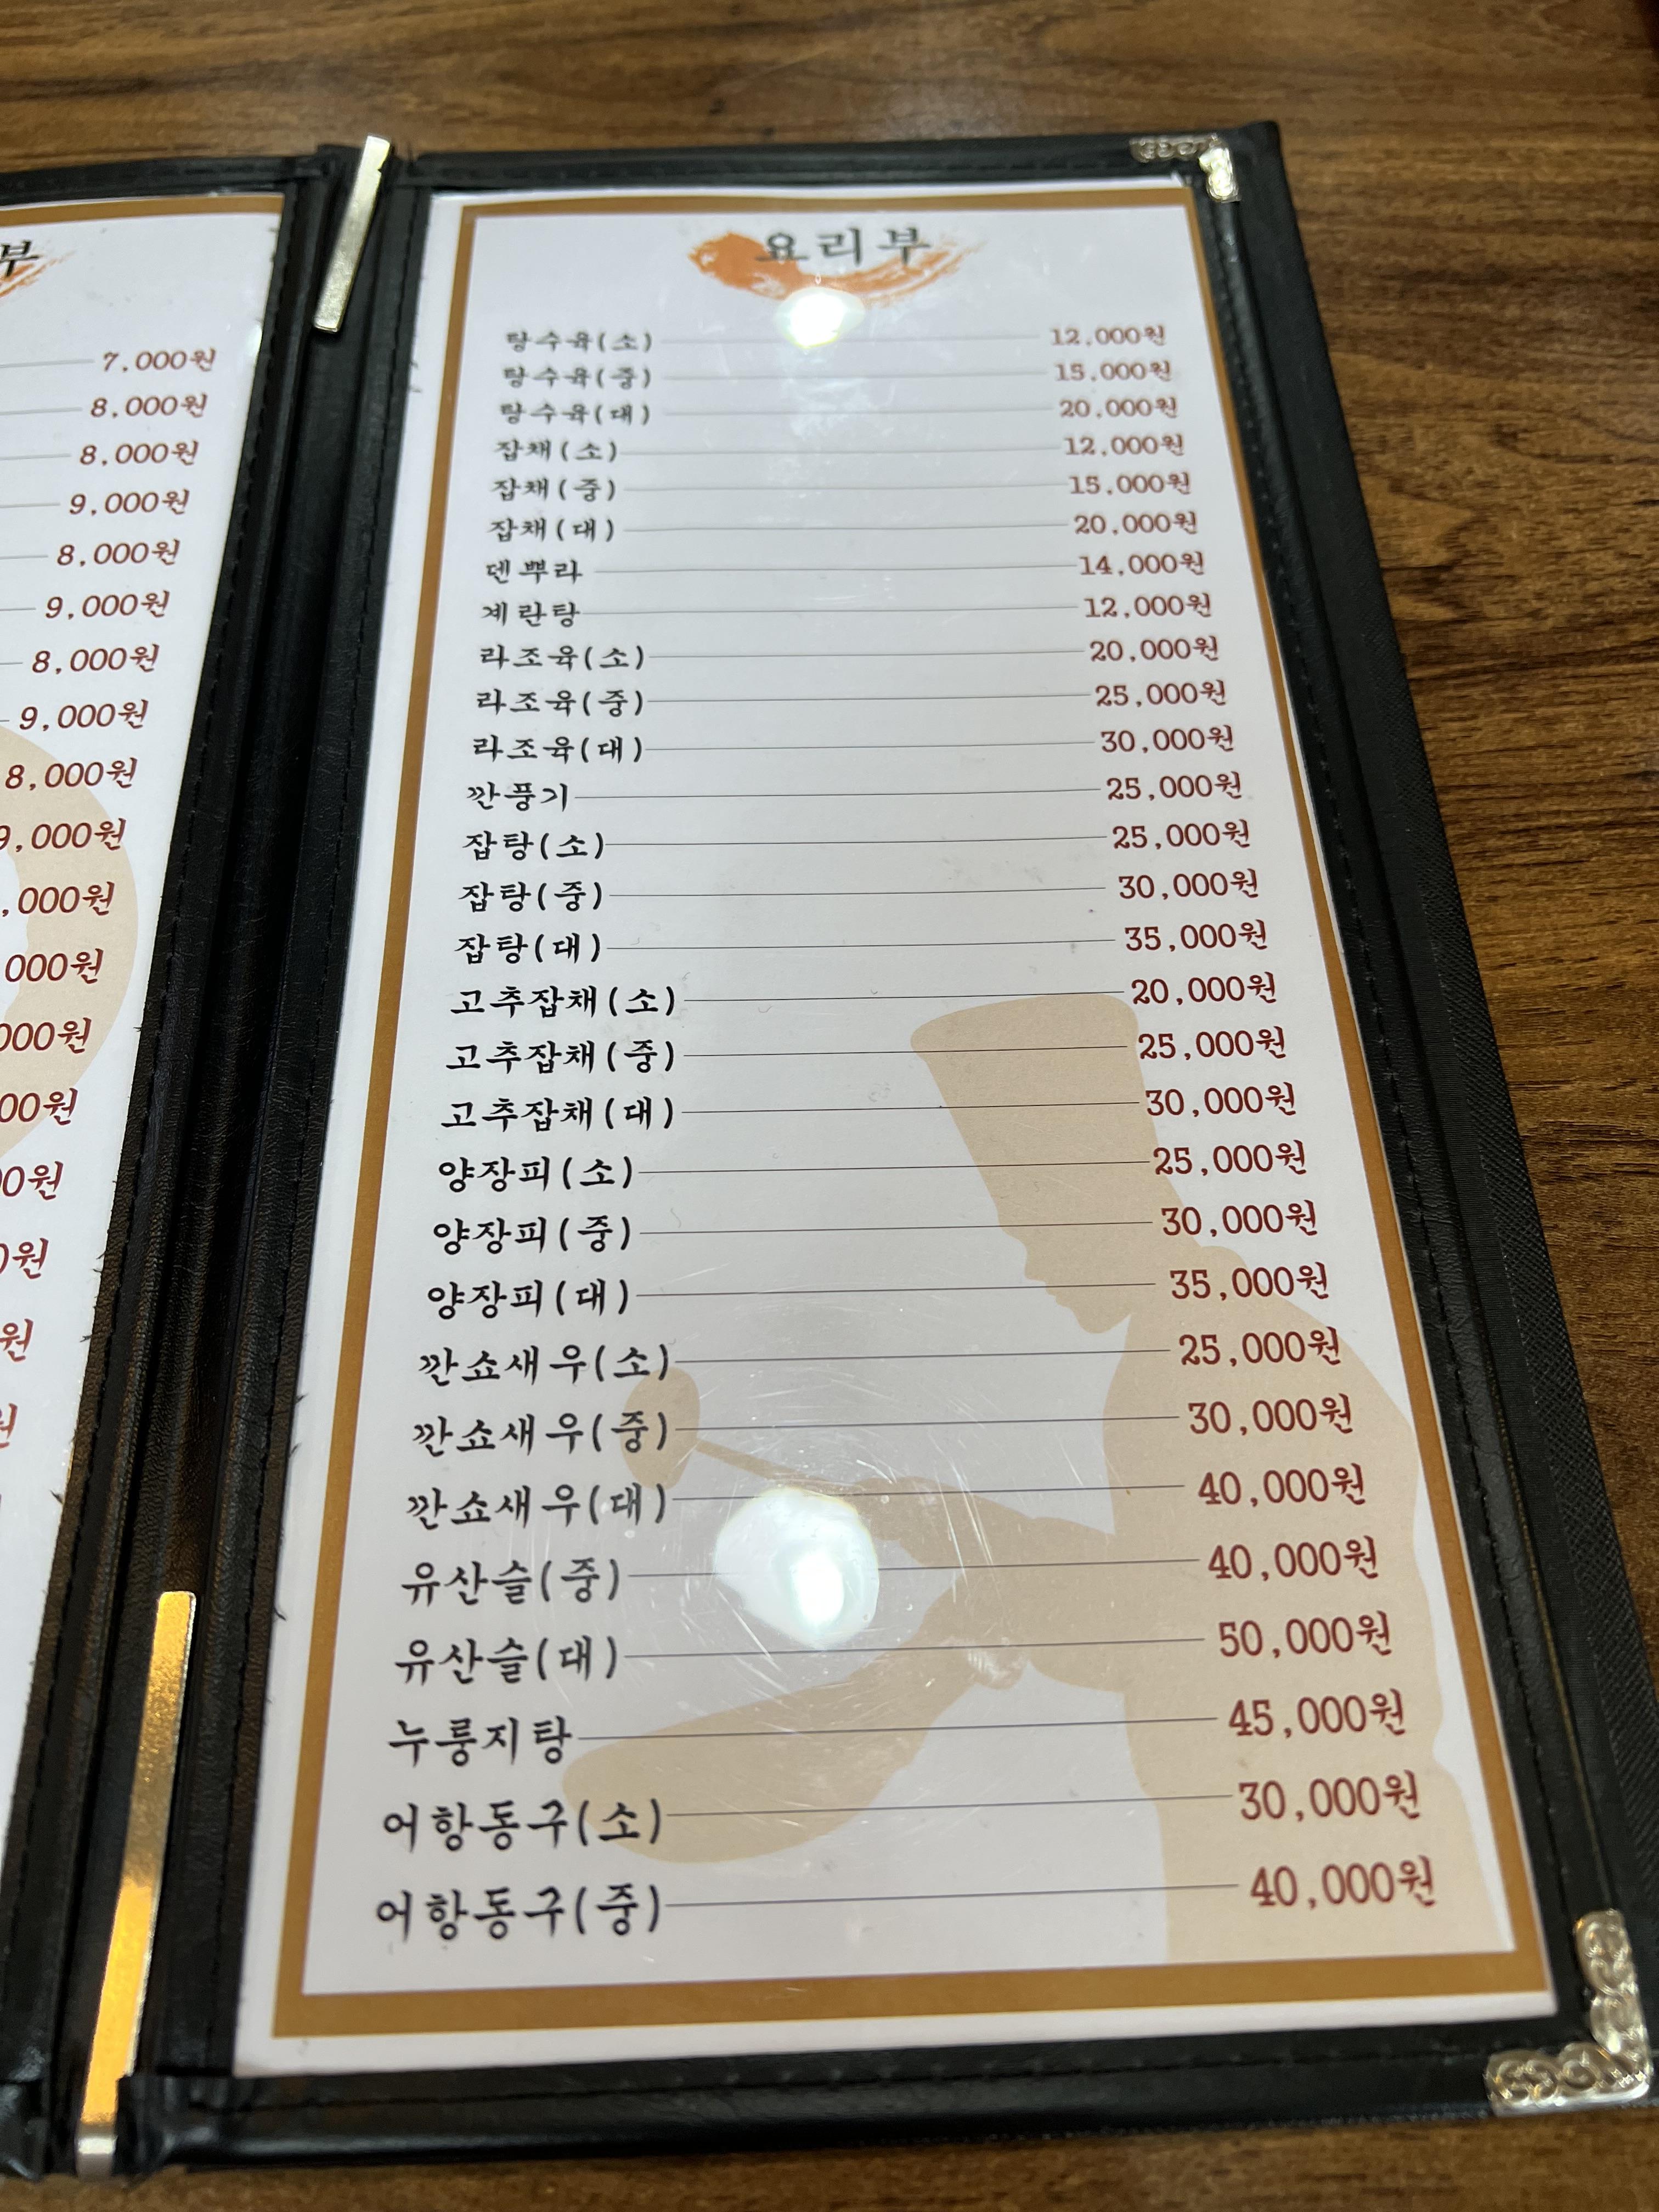 부
7,000원
8,000원
8,000원
9,000원
8,000원
9,000원
8,000원
9,000원
8,000원
9,000원
,000원
000원
000원
00원
0원
0원
원
원
요리부
탕수육(소) 12,000원
탕수육(중) 15,000원
탕수육(대) 20,000원
잡채(소) 12,000원
잡채(중) 15,000원
잡채(대) 20,000원
덴뿌라 14,000원
계란탕 12,000원
라조육(소) 20,000원
라조육(중) 25,000원
라조육(대) 30,000원
깐풍기 25,000원
잡탕(소) 25,000원
잡탕(중) 30,000원
잡탕(대) 35,000원
고추잡채(소) 20,000원
고추잡채(중) 25,000원
고추잡채(대) 30,000원
양장피(소) 25,000원
양장피(중) 30,000원
양장피(대) 35,000원
깐쇼새우(소) 25,000원
깐쇼새우(중) 30,000원
깐쇼새우(대) 40,000원
유산슬(중) 40,000원
유산슬(대) 50,000원
누룽지탕 45,000원
어항동구(소) 30,000원
어항동구(중) 40,000원